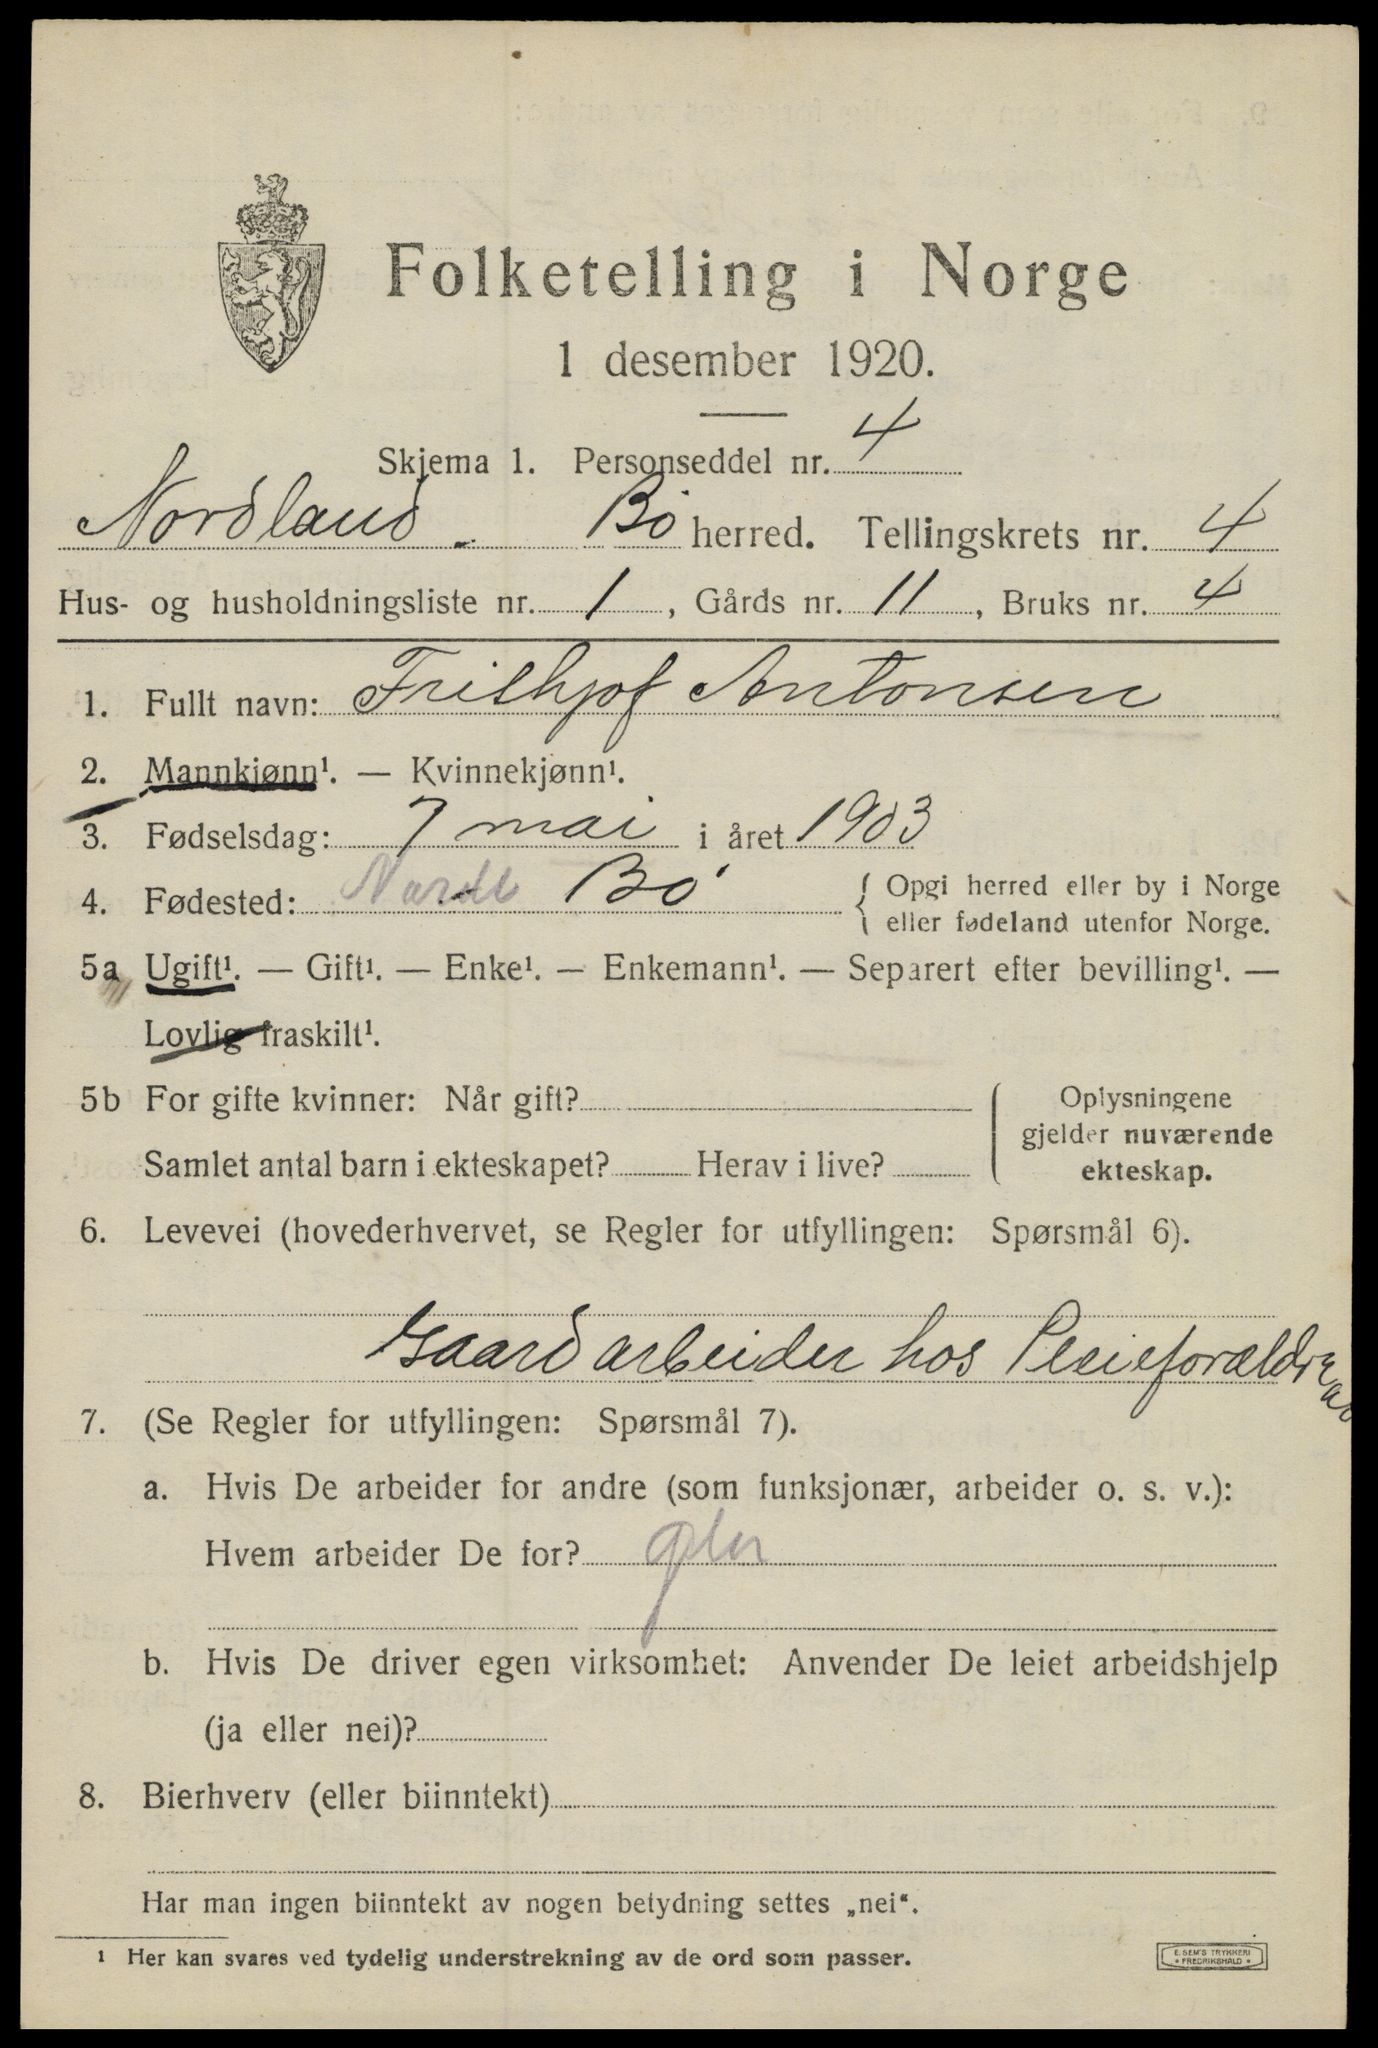 Folketelling i Norge
1 desember 1920.
Skjema 1. Personseddel nr. 4
Nordland. Bø herred. Tellingskrets nr. 4
Hus- og husholdningsliste nr. 1, Gårds nr. 11, Bruks nr. 4
1. Fullt navn: Frithjof Antonsen
2. Mannkjønn¹. — Kvinnekjønn¹.
3. Fødselsdag: 7 mai i året 1903
4. Fødested: Nordl Bø { Opgi herred eller by i Norge
eller fødeland utenfor Norge.
5a Ugift¹. — Gift¹. — Enke¹. — Enkemann¹. — Separert efter bevilling¹. —
Lovlig fraskilt¹.
5b For gifte kvinner: Når gift? { Oplysningene
gjelder nuværende
Samlet antal barn i ekteskapet? Herav i live? ekteskap.
6. Levevei (hovederhvervet, se Regler for utfyllingen: Spørsmål 6).
Gaardarbeider hos Pleieforældre
7. (Se Regler for utfyllingen: Spørsmål 7).
a. Hvis De arbeider for andre (som funksjonær, arbeider o. s. v.):
Hvem arbeider De for?
b. Hvis De driver egen virksomhet: Anvender De leiet arbeidshjelp
(ja eller nei)?
8. Bierhverv (eller biinntekt)
Har man ingen biinntekt av nogen betydning settes „nei“.
¹ Her kan svares ved tydelig understrekning av de ord som passer.
E. SEM'S TRYKKERI
* FREDRIKSHALD *